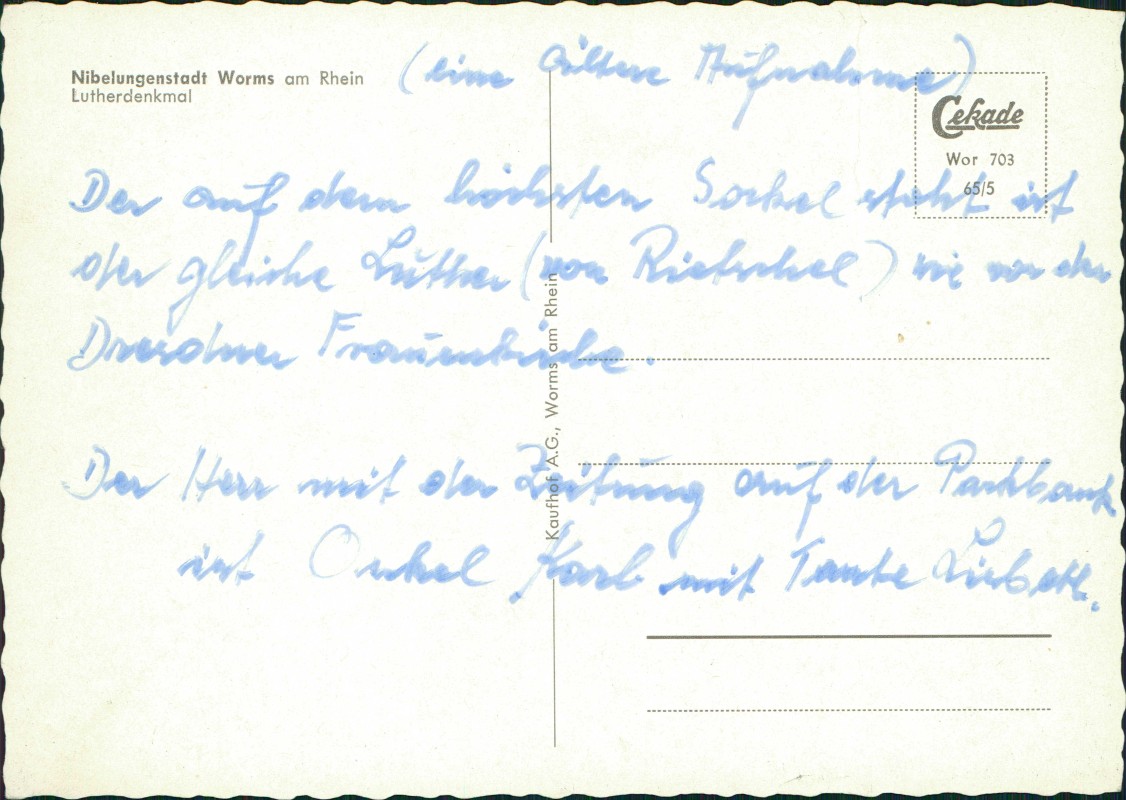 Nibelungenstadt Worms am Rhein
Lutherdenkmal
(eine ältere Aufnahme)
Cekade
Wor 703
65/5
Der auf dem höchsten Sockel steht ist
der gleiche Luther (von Rietschel) wie vor der
Dresdner Frauenkirche.
Der Herr mit der Zeitung auf der Parkbank
ist Onkel Karl mit Tante
Kaufhof A.G., Worms am Rhein